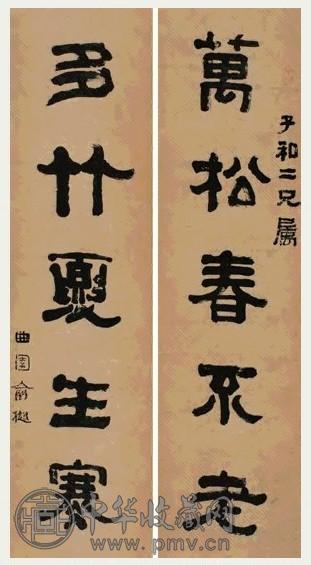 子和二兄屬
萬松春不老
多竹夏生寒
曲園俞樾
中华收藏网
www.pmv.cn